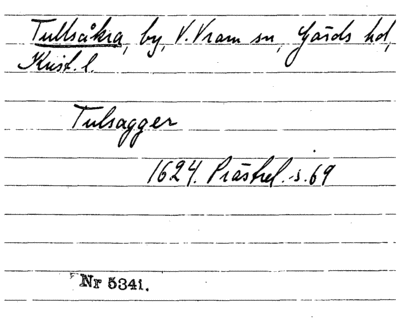 Tullsåkra, by, V. Vram sn, Gärds hd,
Krist. l.
Tulsagger
1624. Prästrel. s. 69
Nr 5341.